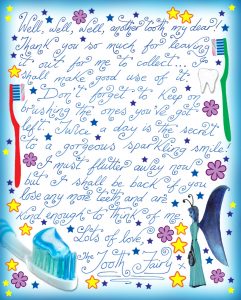 Well, well, well, another tooth my dear!
Thank you so much for leaving
it out for me to collect... I
shall make good use of it.
Don't forget to keep on
brushing the ones you've got
left. Twice a day is the secret
to a gorgeous sparkling smile!
I must flutter away now
but I shall be back if you
lose any more teeth and are
kind enough to think of me.
Lots of love,
The Tooth Fairy x